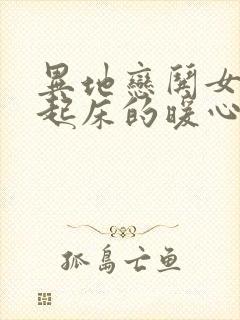 異地戀鬧女
起床的暖心
孤島亡鱼